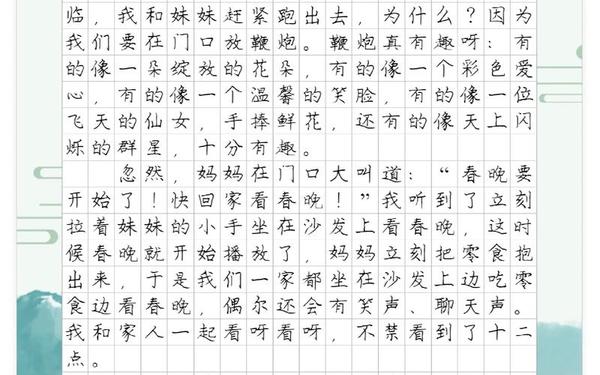 临，我和妹妹赶紧跑出去，为什么？因为
我们要在门口放鞭炮。鞭炮真有趣呀：有
的像一朵绽放的花朵，有的像一个彩色爱
心，有的像一个温馨的笑脸，有的像一位
飞天的仙女，手捧鲜花，还有的像天上闪
烁的群星，十分有趣。
忽然，妈妈在门口大叫道：“春晚要
开始了！快回家看春晚！”我听到了立刻
拉着妹妹的小手坐在沙发上看春晚，这时
候春晚就开始播放了，妈妈立刻把零食抱
出来，于是我们一家都坐在沙发上边吃零
食边看春晚，偶尔还会有笑声、聊天声。
我和家人一起看呀看呀，不禁看到了十二
点。